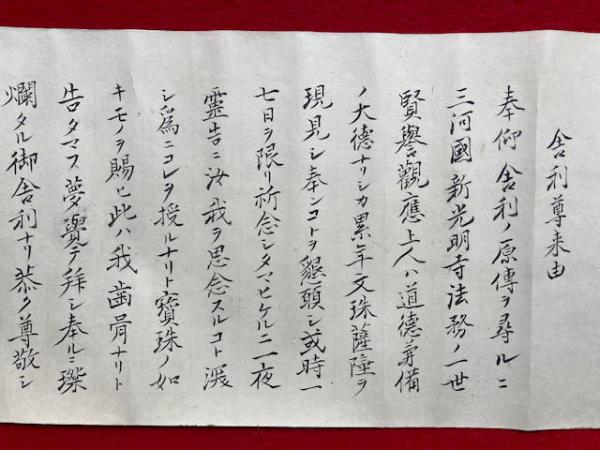 舎利尊来由
奉仰舎利ノ原傳ヲ尋ルニ
三河國新光明寺法務ノ一世
賢譽觀應上人ハ道德兼備
ノ大德ナリシカ累年文珠薩埵ヲ
現見シ奉ンコトヲ懇願シ或時一
七日ヲ限リ祈念シタマヒケルニ一夜
靈告ニ汝我ヲ思念スルコト深
シ爲ニコレヲ授ルナリト寶珠ノ如
キモノヲ賜ヒ此ハ我歯骨ナリト
告タマフ夢覺テ拜シ奉ルニ璨
爛タル御舎利ナリ恭ク尊敬シ